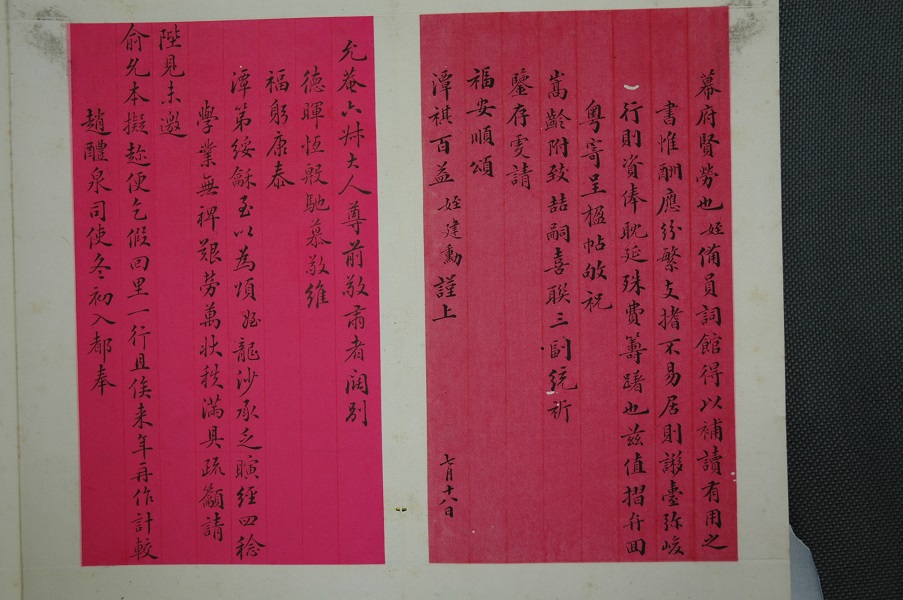 幕府賢勞也姪備員詞館得以補讀有用之
書惟酬應紛繁支撐不易居則謻臺弥峻
行則資俸耽延殊費籌躇也茲值摺弁回
粵寄呈楹帖敬祝
嵩齡附致喆嗣喜聯三副統祈
鑒存雯請
福安順頌
潭祺百益 姪建勳謹上
七月十八日
允菴六叔大人尊前敬肅者闊別
德暉恆殷馳慕敬維
福躬康泰
潭第綏龢至以為頌姪龍沙承乏瞚經四稔
學業無裨艱勞萬狀秩滿具疏籲請
陛見未邀
俞允本擬趁便乞假回里一行且俟来年再作計較
趙醴泉司使冬初入都奉